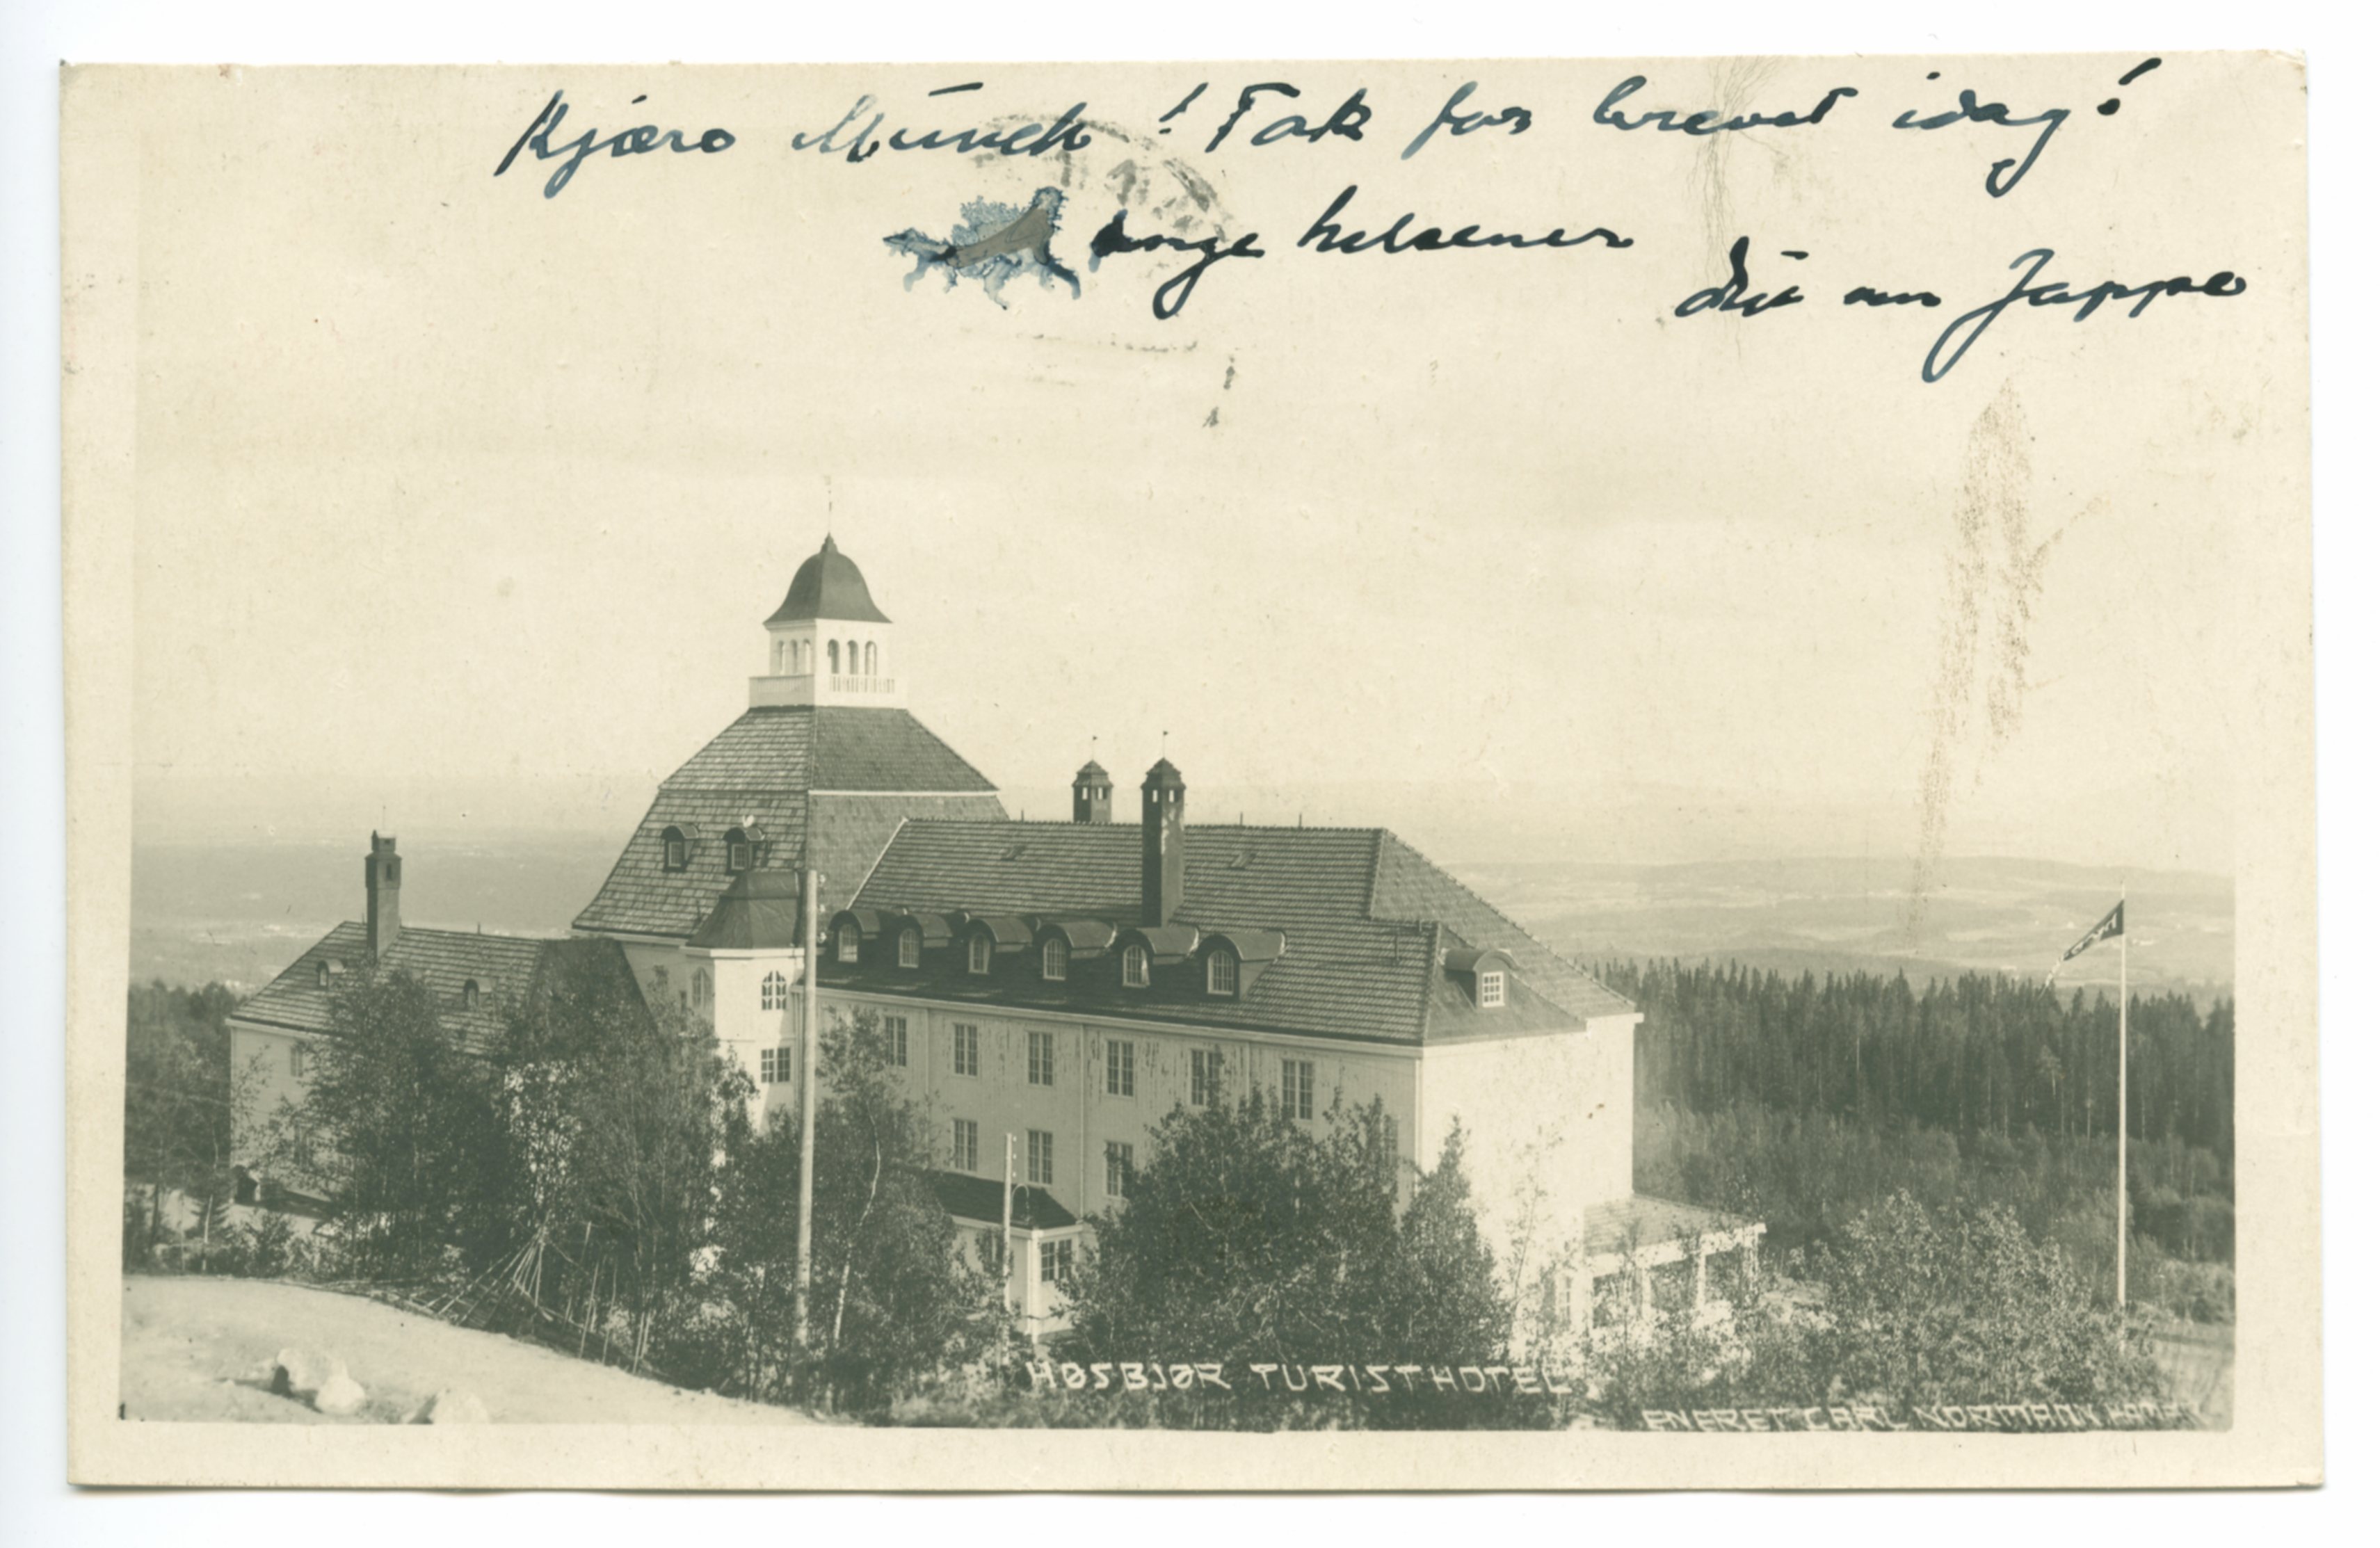 Kjære Munch! Tak for brevet idag!
Mange helsener
din ven Jappe
HØSBJØR TURISTHOTEL
ENERET CARL NORMANN HAMAR